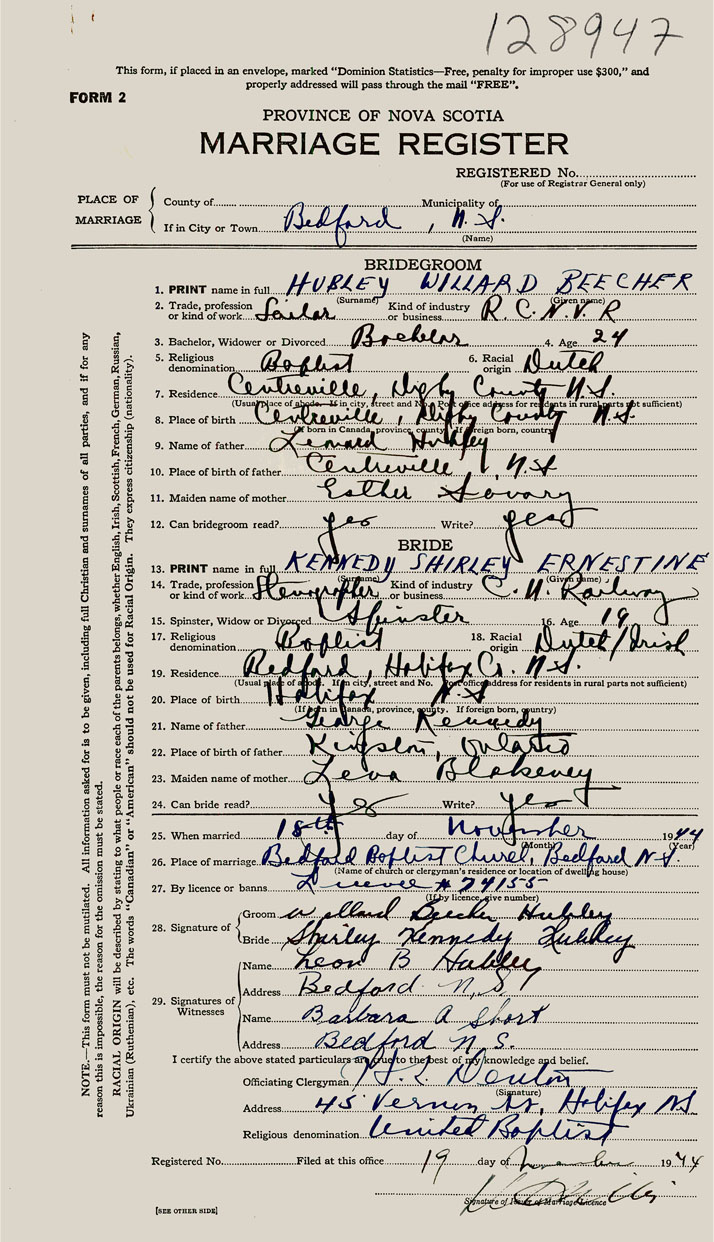 128947
This form, if placed in an envelope, marked "Dominion Statistics—Free, penalty for improper use $300," and
properly addressed will pass through the mail "FREE".
FORM 2
PROVINCE OF NOVA SCOTIA
MARRIAGE REGISTER
REGISTERED No.
(For use of Registrar General only)
PLACE OF MARRIAGE
County of Municipality of
If in City or Town Bedford, N.S.
(Name)
BRIDEGROOM
1. PRINT name in full HUBLEY WILLARD BEECHER
(Surname) (Given name)
2. Trade, profession or kind of work Sailor Kind of industry or business R.C.N.V.R
3. Bachelor, Widower or Divorced Bachelor 4. Age 24
5. Religious denomination Baptist 6. Racial origin Dutch
7. Residence Centreville, Digby County N.S
(Usual place of abode. If in city, street and No. Post office address for residents in rural parts not sufficient)
8. Place of birth Centreville, Digby County N.S.
(If born in Canada, province, county. If foreign born, country)
9. Name of father Lenard Hubley
10. Place of birth of father Centreville, N.S
11. Maiden name of mother Esther Savary
12. Can bridegroom read? yes Write? yes
BRIDE
13. PRINT name in full KENNEDY SHIRLEY ERNESTINE
(Surname) (Given name)
14. Trade, profession or kind of work Stenographer Kind of industry or business C.N. Railway
15. Spinster, Widow or Divorced Spinster 16. Age 19
17. Religious denomination Baptist 18. Racial origin Dutch/Irish
19. Residence Bedford, Halifax Co. N.S.
(Usual place of abode. If in city, street and No. Post office address for residents in rural parts not sufficient)
20. Place of birth Halifax N.S
(If born in Canada, province, county. If foreign born, country)
21. Name of father George Kennedy
22. Place of birth of father Kingston, Ontario
23. Maiden name of mother Leva Blakeney
24. Can bride read? yes Write? yes
25. When married 18th day of November 1944
(Month) (Year)
26. Place of marriage Bedford Baptist Church, Bedford N.S.
(Name of church or clergyman's residence or location of dwelling house)
27. By licence or banns Licence # 74155
(If by licence, give number)
28. Signature of
Groom Willard Beecher Hubley
Bride Shirley Kennedy Hubley
29. Signatures of Witnesses
Name Leon B Hubley
Address Bedford N.S.
Name Barbara A Short
Address Bedford N.S.
I certify the above stated particulars are true to the best of my knowledge and belief.
Officiating Clergyman Denton
(Signature)
Address 45 Vernon St, Halifax N.S
Religious denomination United Baptist
Registered No. Filed at this office 19 day of 1944
Signature of Issuer of Marriage Licence
[SEE OTHER SIDE]
NOTE.—This form must not be mutilated. All information asked for is to be given, including full Christian and surnames of all parties, and if for any
reason this is impossible, the reason for the omission must be stated.
RACIAL ORIGIN will be described by stating to what people or race each of the parents belongs, whether English, Irish, Scottish, French, German, Russian,
Ukrainian (Ruthenian), etc. The words "Canadian" or "American" should not be used for Racial Origin. They express citizenship (nationality).